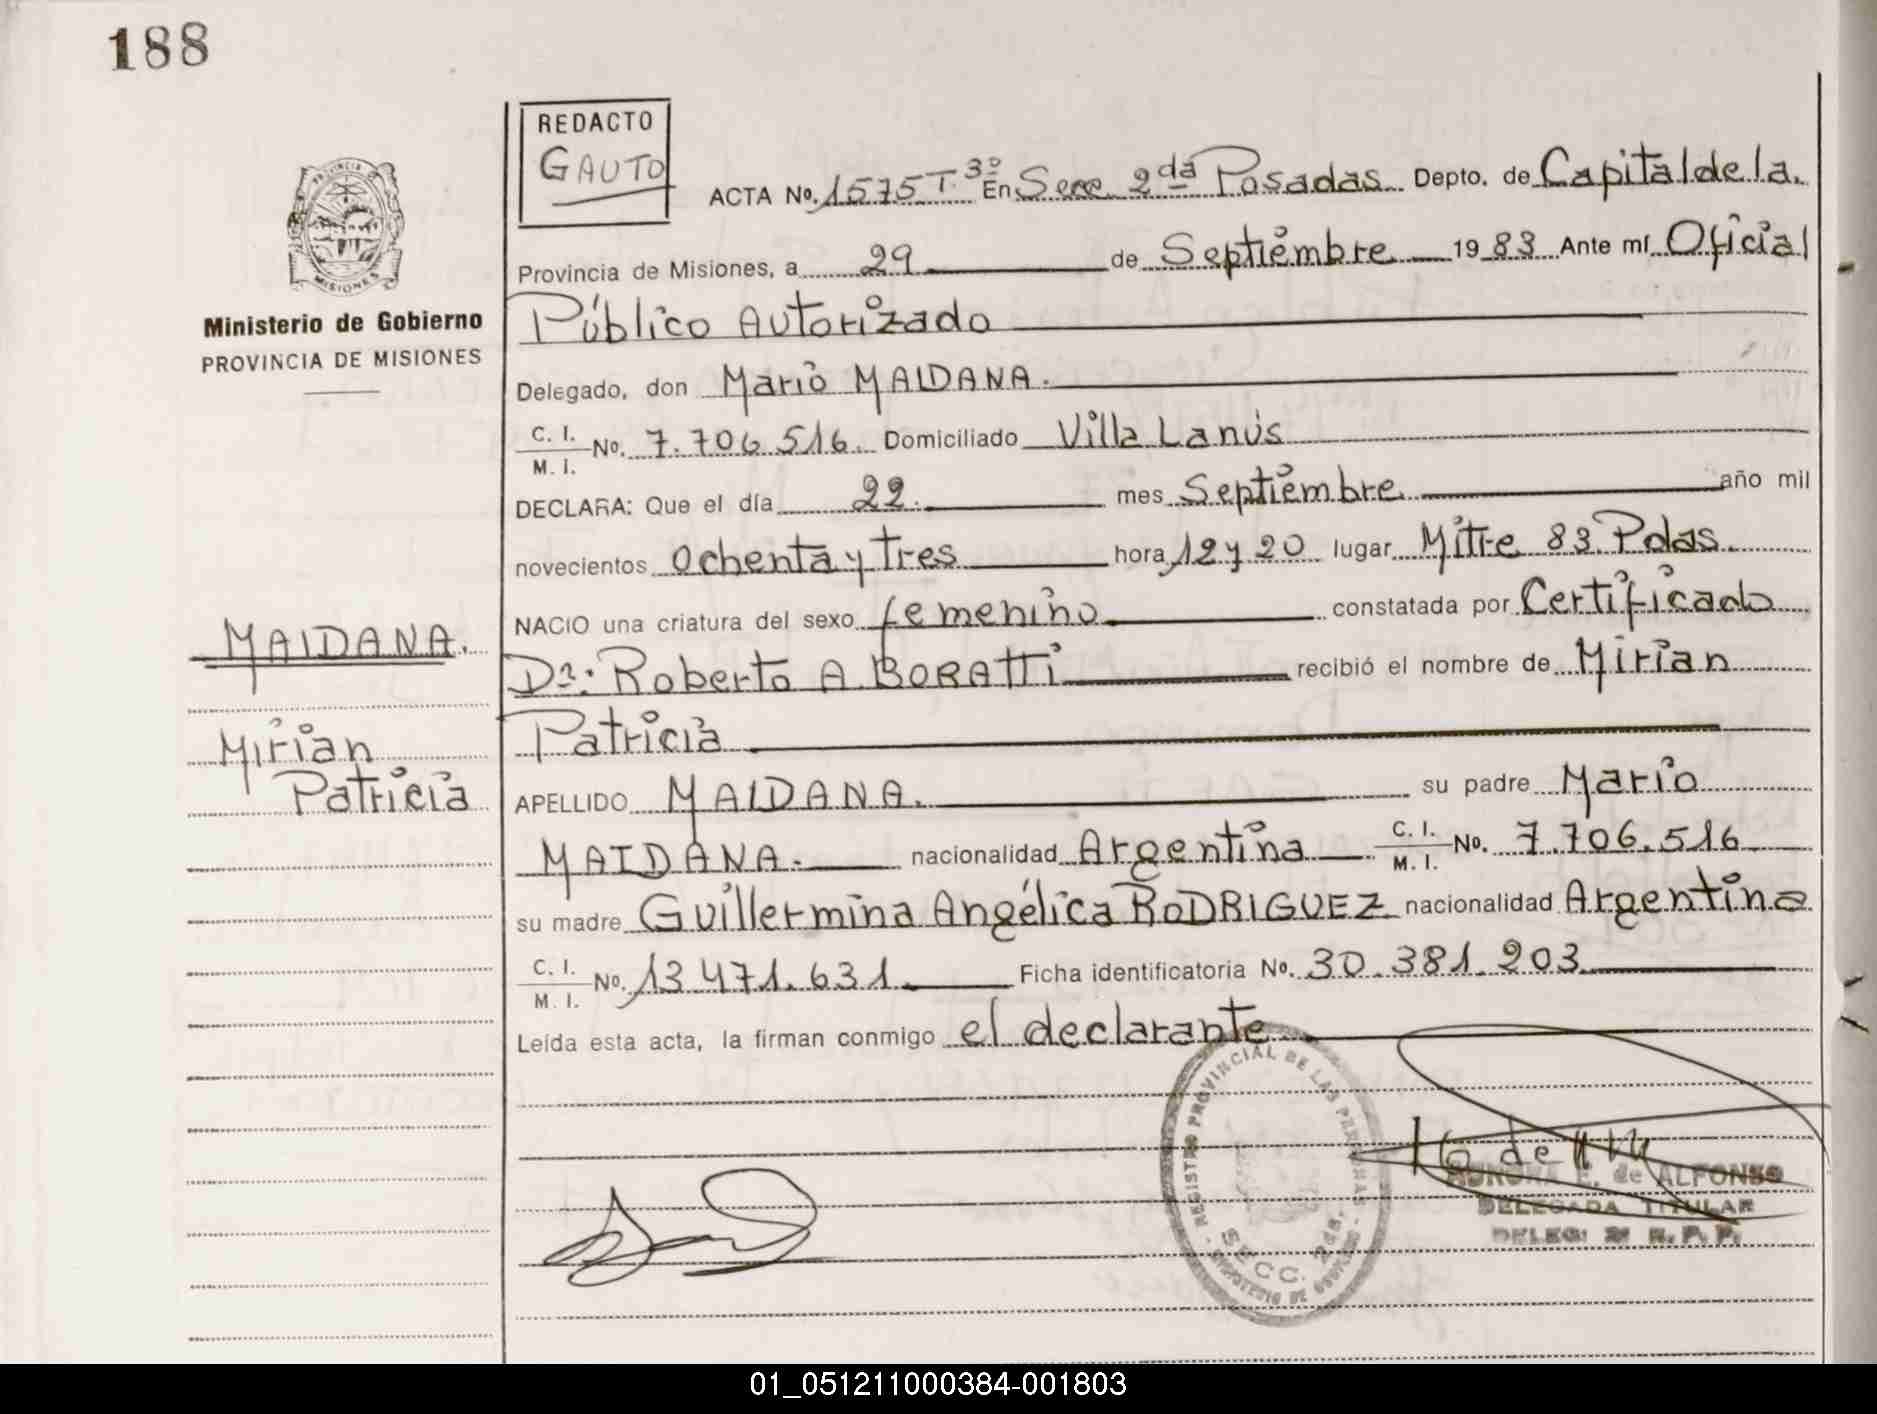 188
REDACTO
GAUTO
ACTA No. 1575 T. 3º En Secc 2da Posadas Depto. de Capital de la
Provincia de Misiones, a 29 de Septiembre 1983 Ante mí Oficial
Público Autorizado
Delegado, don Mario MAIDANA.
C. I.
M. I.
No. 7.706.516. Domiciliado Villa Lanús
DECLARA: Que el día 22. mes Septiembre año mil
novecientos Ochenta y Tres hora 12 y 20 lugar Mitre 83 Pdas.
NACIO una criatura del sexo femenino constatada por Certificado
Dr: Roberto A BORATTI recibió el nombre de Mirian
Patricia
APELLIDO MAIDANA. su padre Mario
MAIDANA. nacionalidad Argentina C. I. M. I. No. 7.706.516
su madre Guillermina Angélica RODRIGUEZ nacionalidad Argentina
C. I.
M. I.
No. 13.471.631 Ficha identificatoria No. 30.381.203
Leída esta acta, la firman conmigo el declarante
PROVINCIA DE
MISIONES
Ministerio de Gobierno
PROVINCIA DE MISIONES
MAIDANA.
Mirian
Patricia
REGISTRO PROVINCIAL DE LAS PERSONAS
SECC. 2da.
MINISTERIO DE GOBIERNO
E. de ALFONSO
DELEGADA TITULAR
DELEG: R. P. P.
01_051211000384-001803